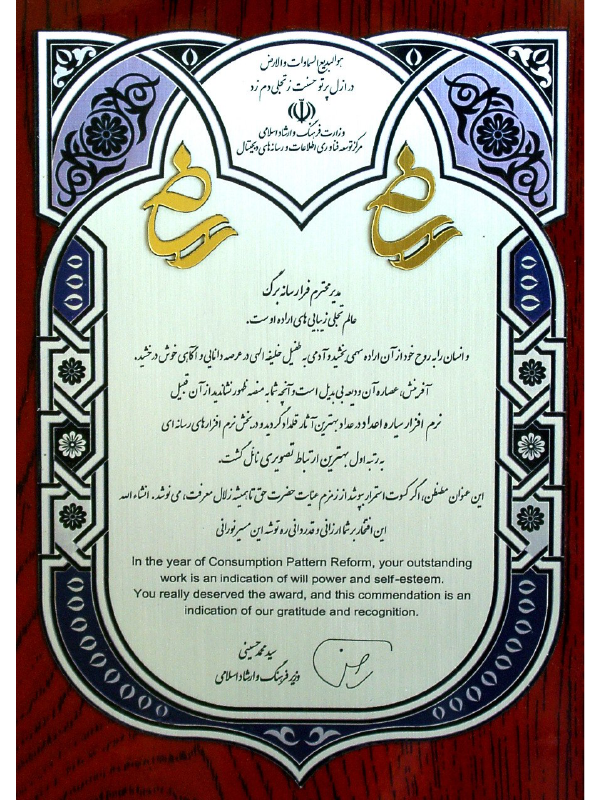 هوالبدیع السماوات والارض
در ازل پرتو حسنت ز تجلی دم زد
وزارت فرهنگ و ارشاد اسلامی
مرکز توسعه فناوری اطلاعات و رسانه های دیجیتال
مدیر محترم فرارسانه برگ
عالم تجلی زیبایی های اراده اوست.
و انسان را به روح خود از آن اراده سهمی بخشید و آدمی به طفیل خلیفه الهی در عرصه دانایی و آگاهی خوش درخشید.
آفرینش، عصاره آن ودیعه بی بدیل است و آنچه شما به منصه ظهور نشاندید از آن قبیل
نرم افزار سیاره اعداد در عداد بهترین آثار قلمداد گردید و در بخش نرم افزارهای رسانه ای
به رتبه اول بهترین ارتباط تصویری نائل گشت.
این عنوان مطنطن، اگر کسوت استمرار بپوشد از زمزم عنایت حضرت حق تا همیشه زلال معرفت، می نوشد. انشاء الله
این افتخار بر شما ارزانی و قدردانی ره توشه این مسیر نورانی
In the year of Consumption Pattern Reform, your outstanding
work is an indication of will power and self-esteem.
You really deserved the award, and this commendation is an
indication of our gratitude and recognition.
سید محمد حسینی
وزیر فرهنگ و ارشاد اسلامی